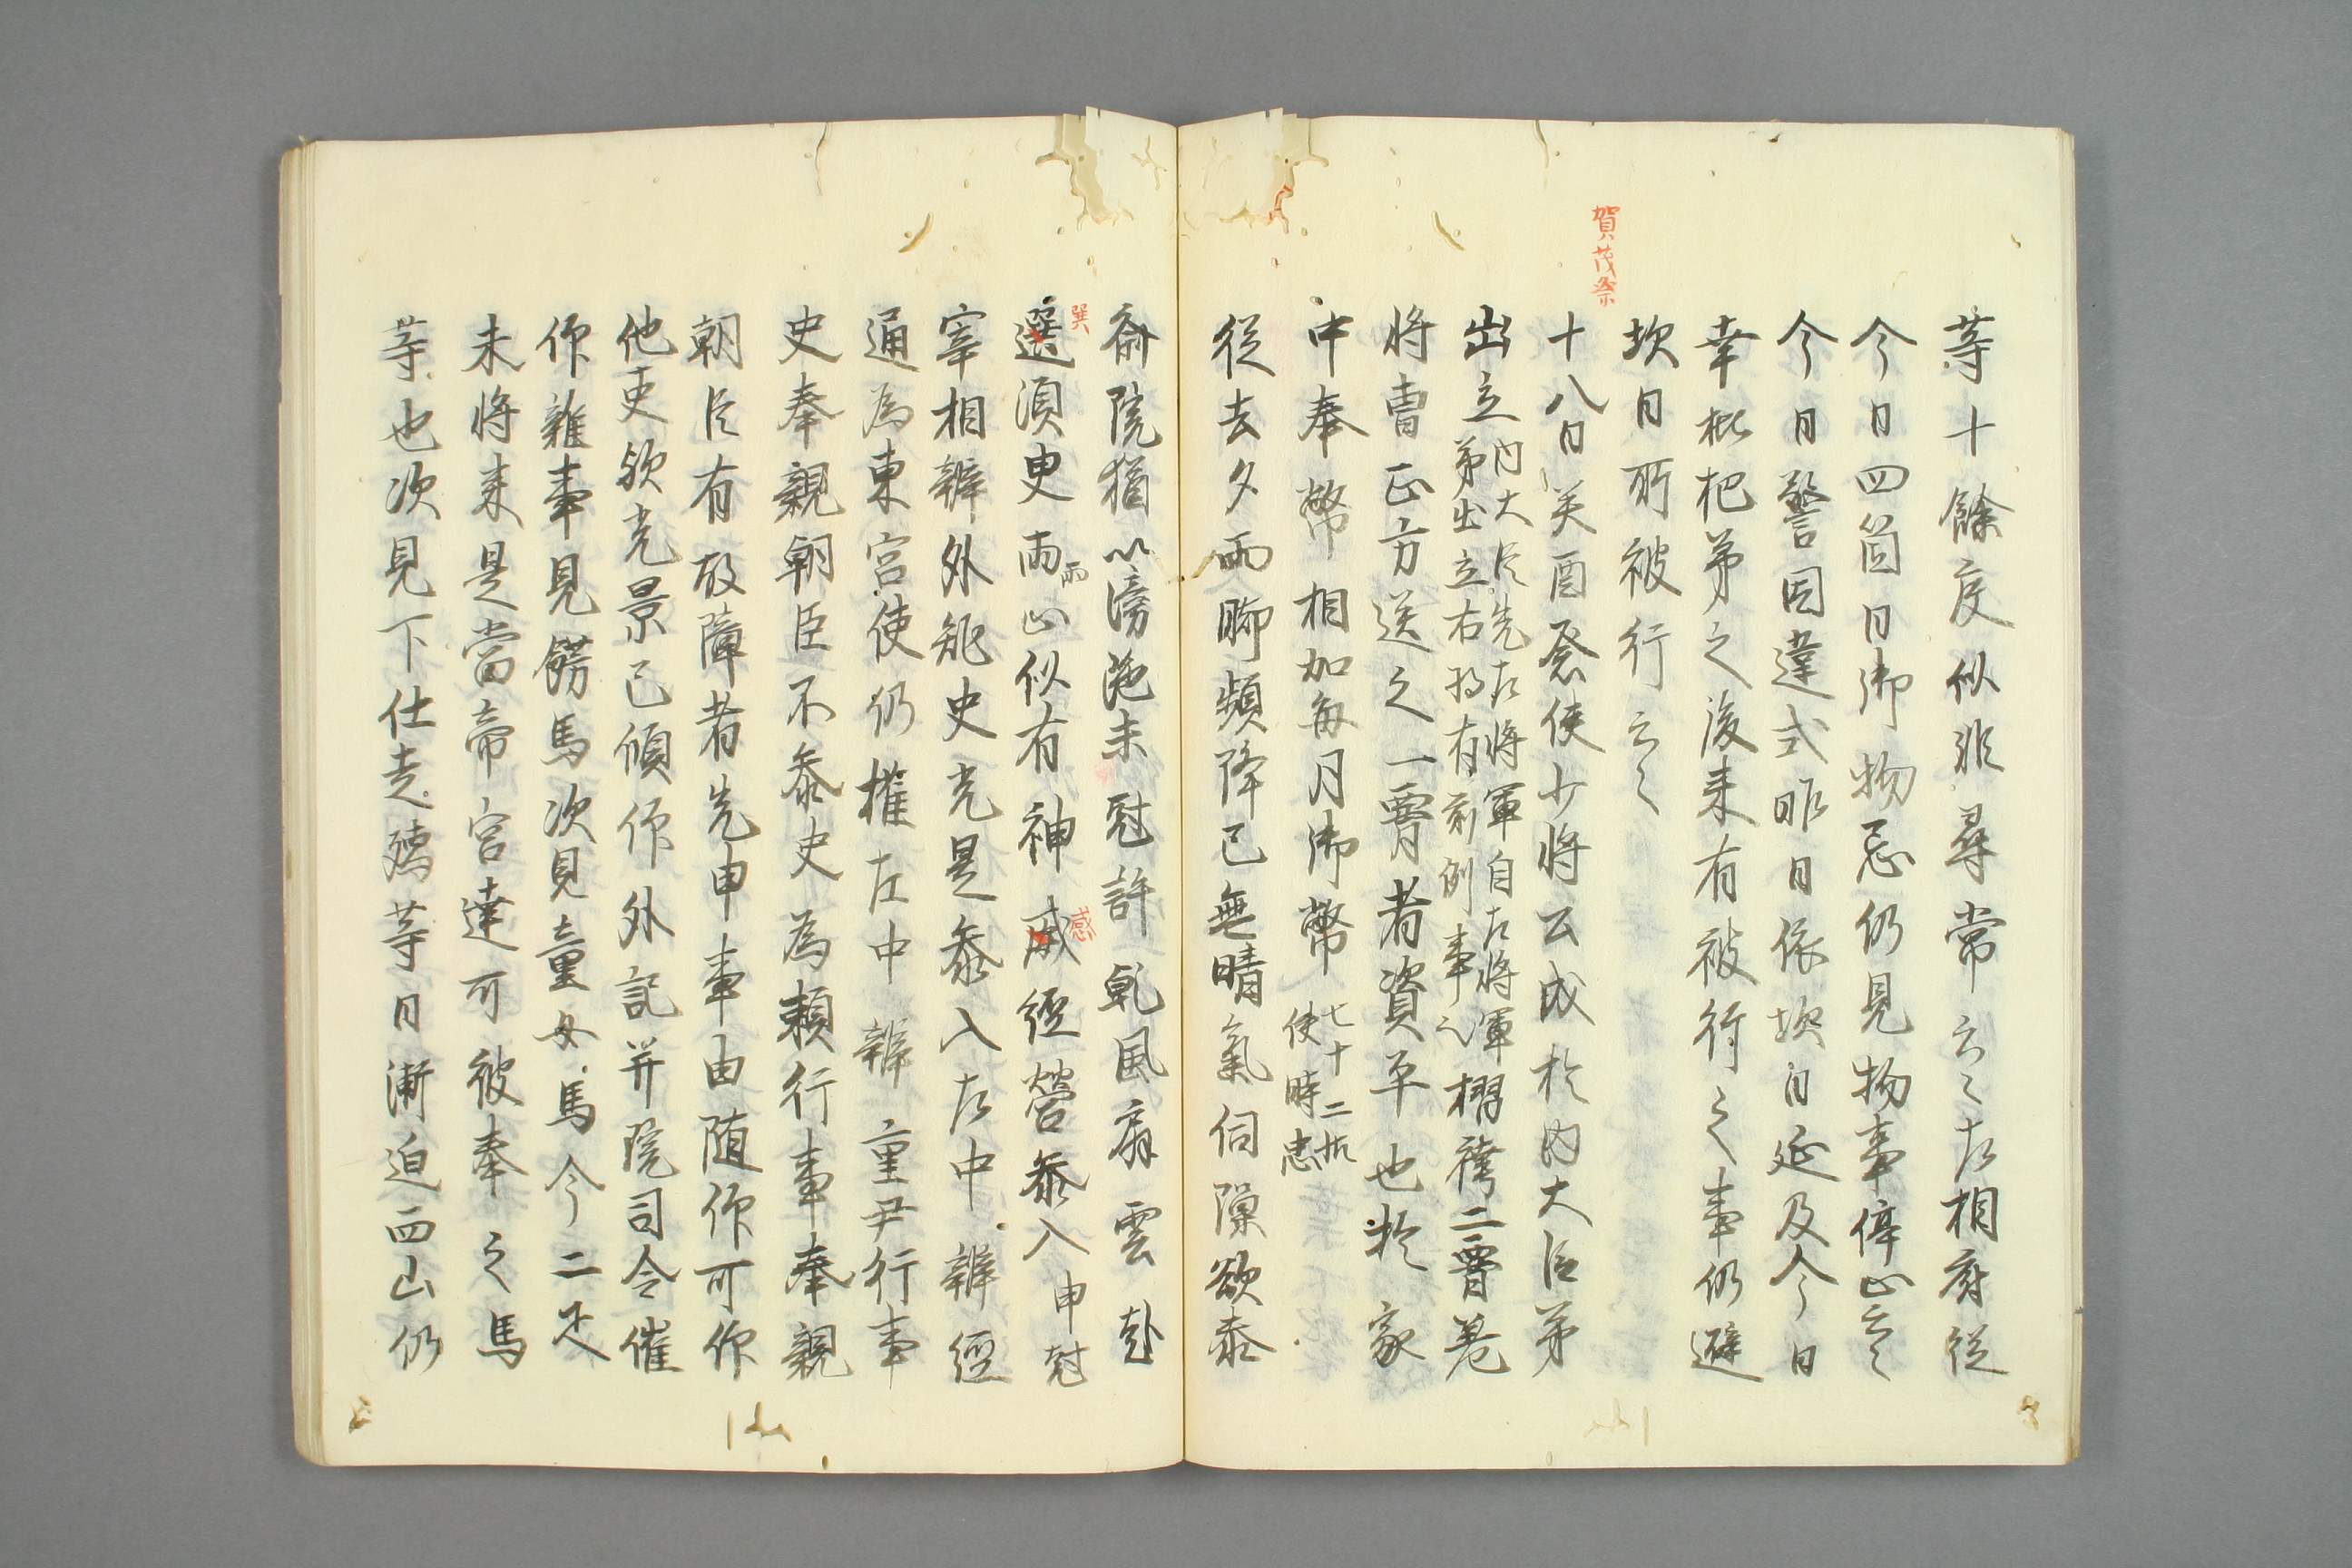 等十餘度似非尋常云々左相府従
今日四箇日御物忌仍見物事停止云々
今日警固違式昨日依坎日延及今日
幸枇杷第之後来有被行之事仍避
坎日所被行云々
賀茂祭
十八日癸酉祭使少将公成於内大臣第
出立内大臣先左将軍自左将軍
第出立右将有前例事也摺袴二霄巻
将曹正方送之一霄者資平也於家
中奉幣相加毎月御幣七十二枚
使時忠
従去夕雨脚頻降已無晴氣伺隙欲参
斎院猶以滂沱未尅許乾風扇雲起
巽
選須臾雨止似有神感經營参入申尅
雨
感
宰相辨外記史先是参入左中辨經
通為東宮使仍権左中辨重尹行事
史奉親朝臣不参史為頼行事奉親
朝臣有故障者先申事由随作可作
他吏欲光景已傾作外記并院司令催
作雜事見餝馬次見童女馬今二疋
未将来是當帝宮達可被奉之馬
等也次見下仕走孺等日漸迫西山仍